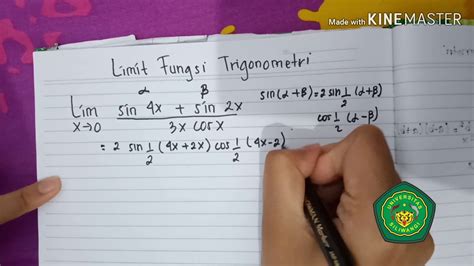 Made with KINEMASTER
Limit Fungsi Trigonometri
α β
Lim x→0 sin 4x + sin 2x / 3x cos x
sin (α+β) = 2 sin 1/2 (α+β)
cos 1/2 (α-β)
= 2 sin 1/2 (4x+2x) cos 1/2 (4x-2)
UNIVERSITAS
SILIWANGI